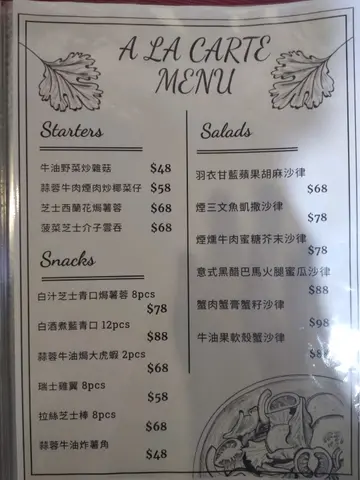 A LA CARTE
MENU
Starters
牛油野菜炒雜菇 $48
蒜蓉牛肉煙肉炒椰菜仔 $58
芝士西蘭花焗薯蓉 $68
菠菜芝士介子雲吞 $68
Snacks
白汁芝士青口焗薯蓉 8pcs
$78
白酒煮藍青口 12pcs
$88
蒜蓉牛油焗大虎蝦 2pcs
$68
瑞士雞翼 8pcs
$58
拉絲芝士棒 8pcs
$68
蒜蓉牛油炸薯角
$48
Salads
羽衣甘藍蘋果胡麻沙律
$68
煙三文魚凱撒沙律
$78
煙燻牛肉蜜糖芥末沙律
$78
意式黑醋巴馬火腿蜜瓜沙律
$88
蟹肉蟹膏蟹籽沙律
$98
牛油果軟殼蟹沙律